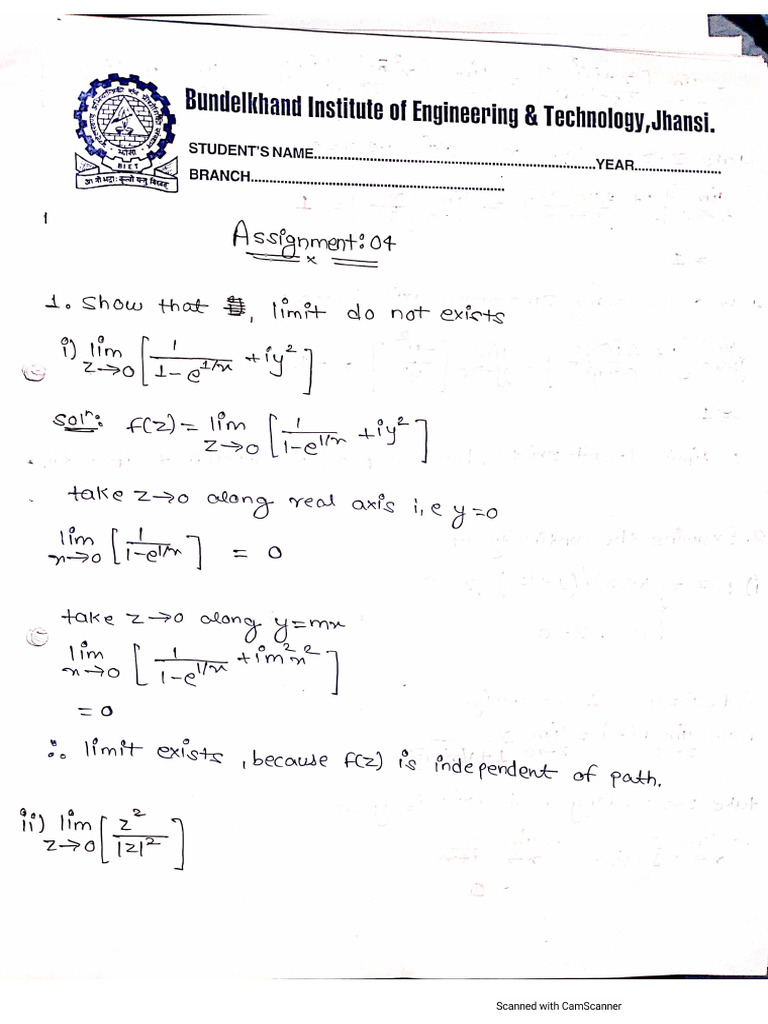 Bundelkhand Institute of Engineering & Technology, Jhansi.
STUDENT'S NAME..........................................................................YEAR.......................
BRANCH...................................................................
BIET
1
Assignment: 04
x
1. Show that , limit do not exists
i) lim z→0 [ 1/(1-e^(1/x)) + iy² ]
Solⁿ: f(z) = lim z→0 [ 1/(1-e^(1/x)) + iy² ]
take z→0 along real axis i,e y=0
lim x→0 [ 1/(1-e^(1/x)) ] = 0
take z→0 along y=mx
lim x→0 [ 1/(1-e^(1/x)) + im²x² ]
= 0
∴ limit exists, because f(z) is independent of path.
ii) lim z→0 [ z²/|z|² ]
Scanned with CamScanner